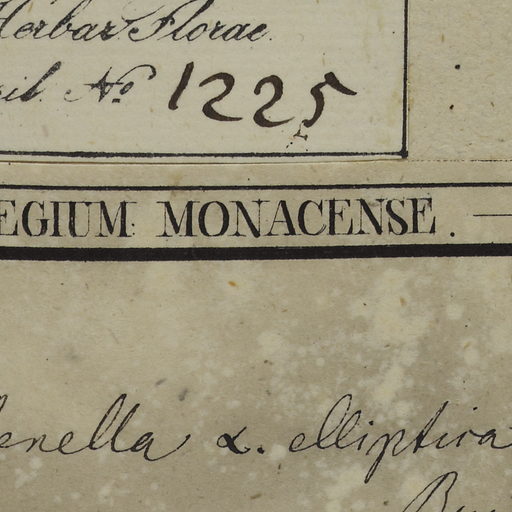 Herbar. Florae
sil. No. 1225
EGIUM MONACENSE.
enella α. elliptica